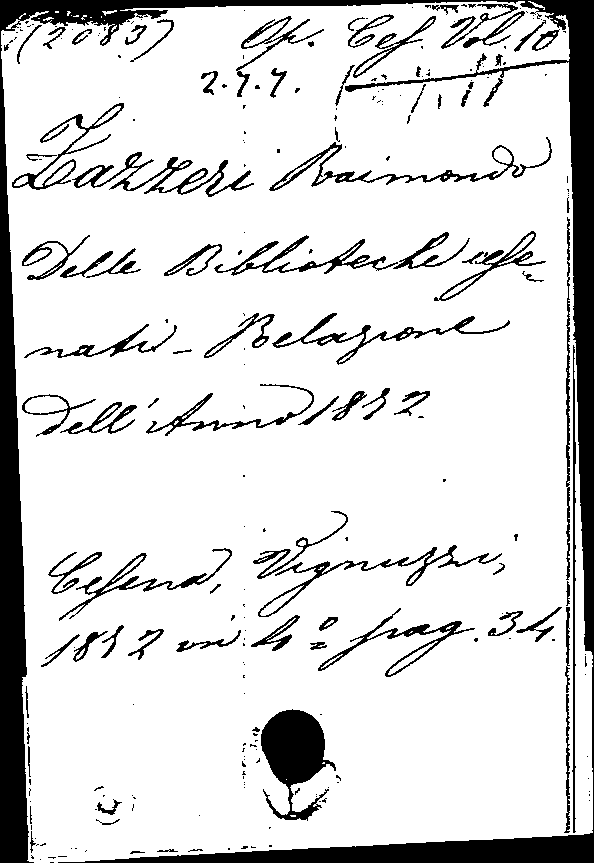 (2083) Op. Ces. Vol. 10
2.7.7.
Zazzeri Raimondo
Delle Biblioteche cese-
nati - Relazione
dell'Anno 1892.
Cesena, Vignuzzi,
1892 in 4º pag. 34.